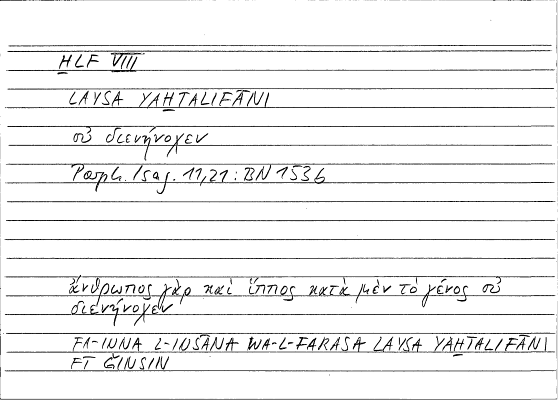 ḪLF V̅I̅I̅I̅
LAYSA YAḪTALIFĀNI
οὐ διενήνοχεν
Porph. Isag. 11,21 : BN 153b
ἄνθρωπος γὰρ καὶ ἵππος κατὰ μὲν τὸ γένος οὐ
διενήνοχεν
FA-INNA L-INSĀNA WA-L-FARASA LAYSA YAḪTALIFĀNI
FĪ ǦINSIN